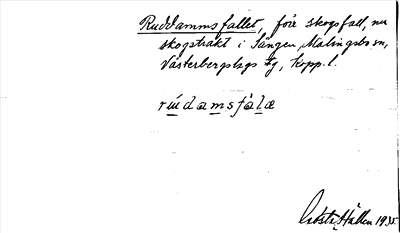 Ruddammsfallet, förr skogsfall, nu
skogstrakt i Tången, Malingsbo sn,
Västerbergslags tg, kopp. l.
rúdamsfalæ
Gösta Hållen 1935